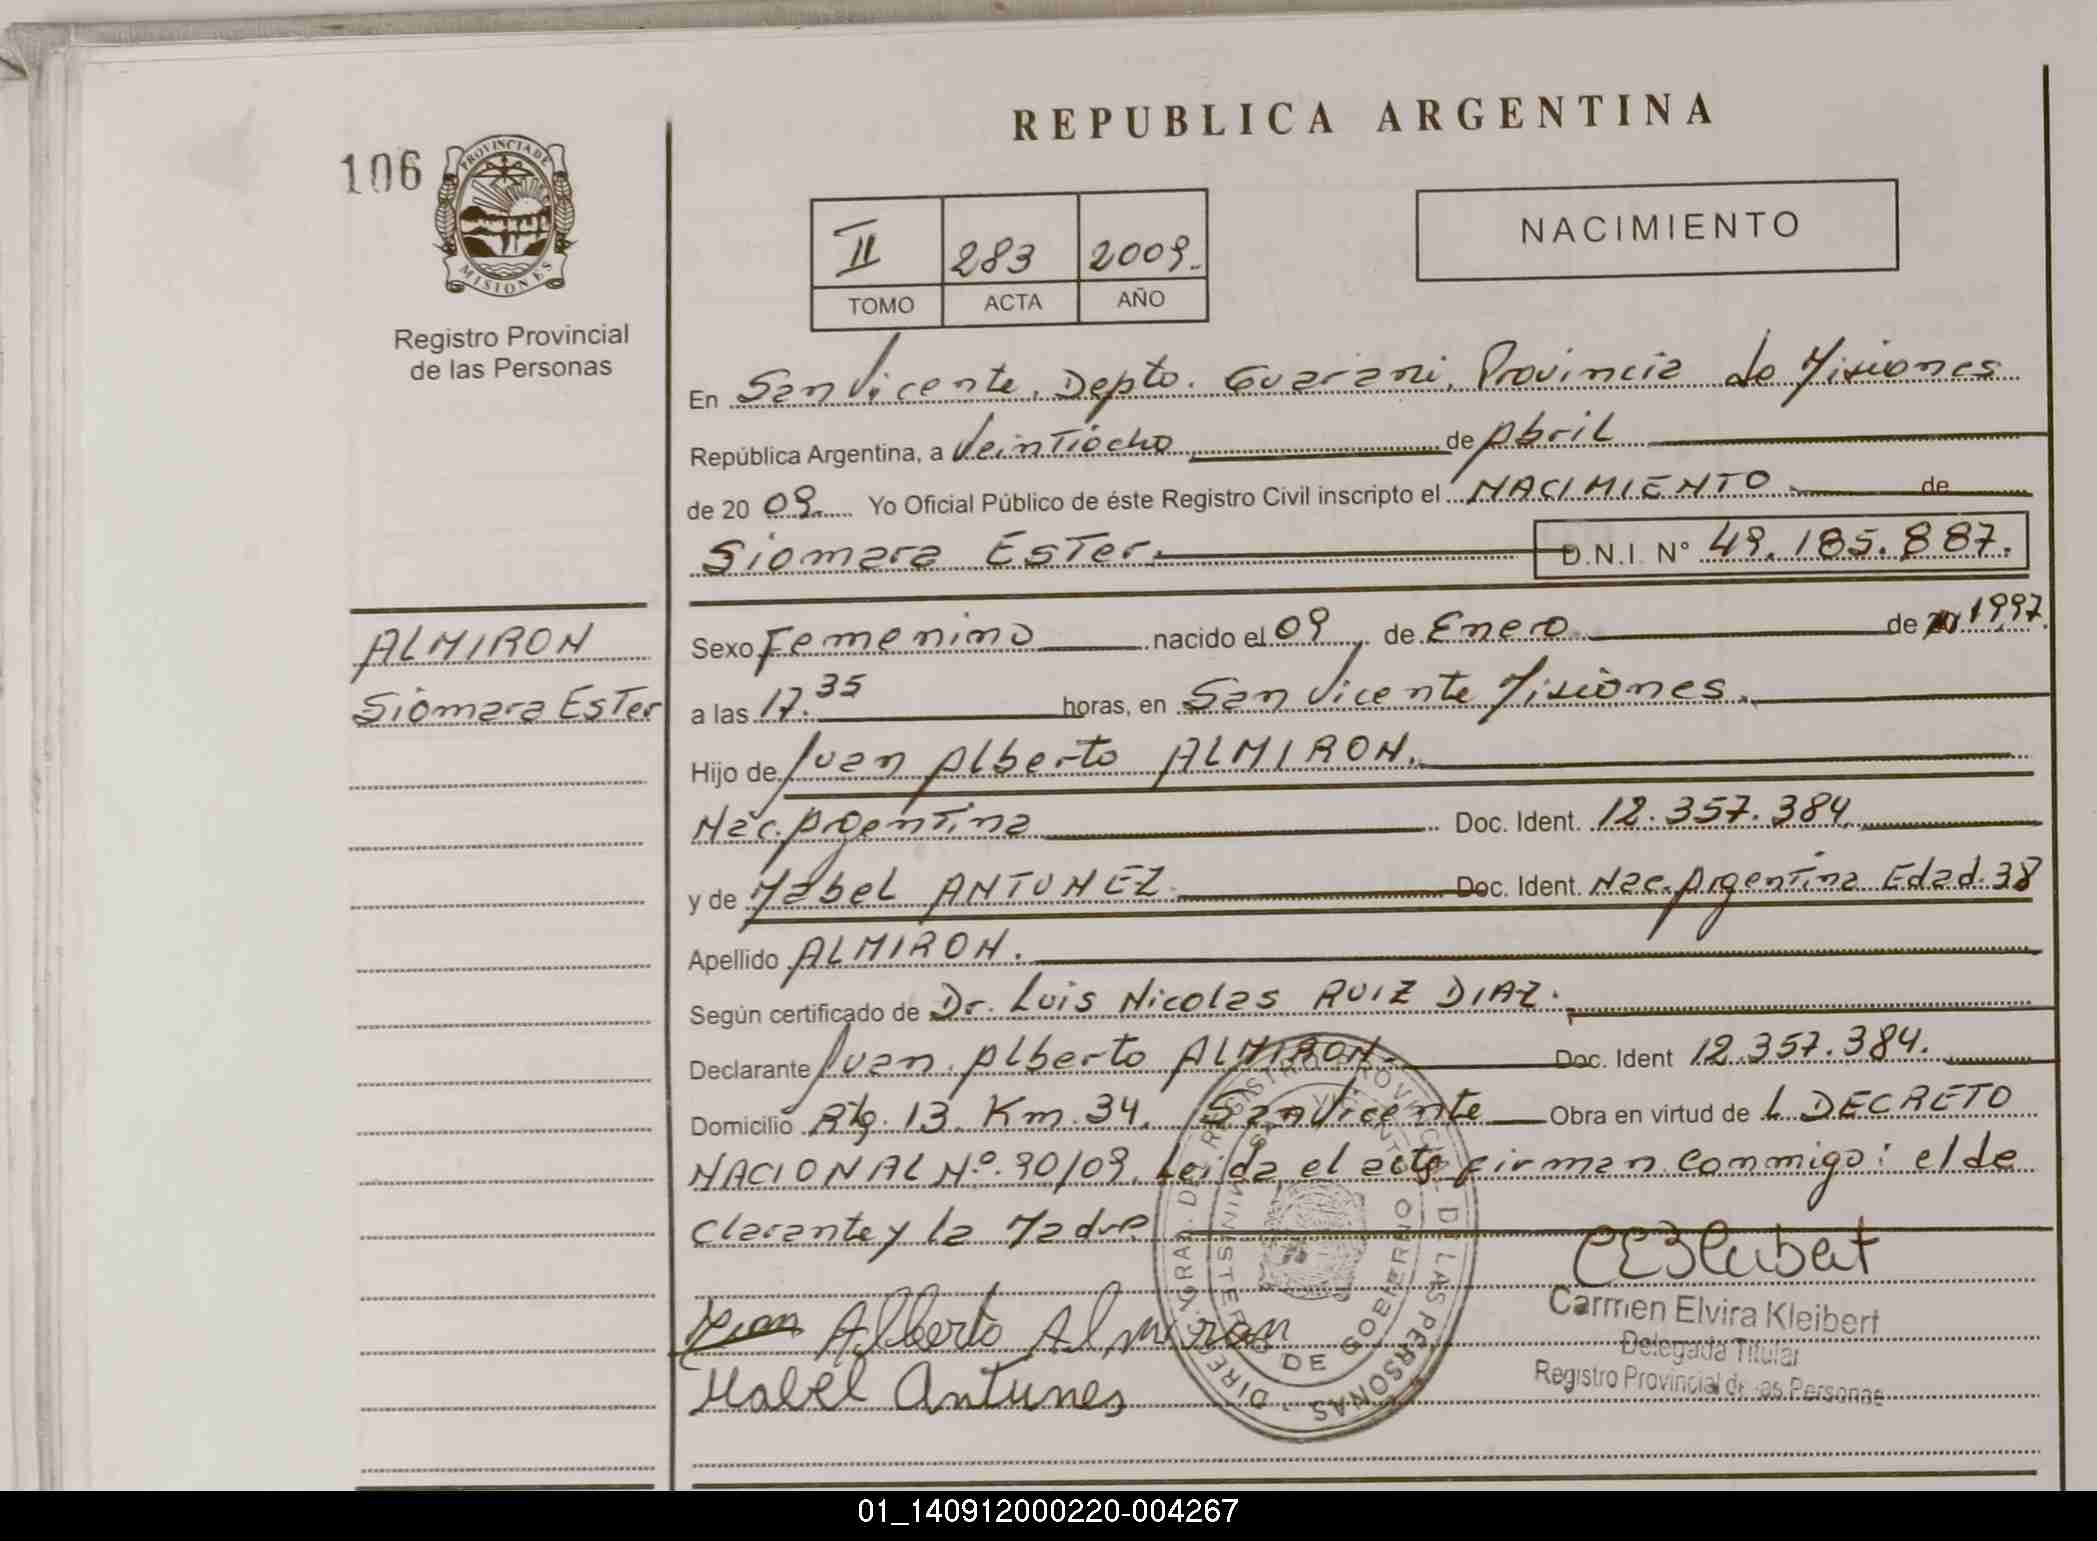 REPUBLICA ARGENTINA
106
PROVINCIA DE
MISIONES
Registro Provincial
de las Personas
II 283 2009.
TOMO ACTA AÑO
NACIMIENTO
En San Vicente, Depto. Guarani, Provincia de Misiones
República Argentina, a Veintiocho de Abril
de 20 09. Yo Oficial Público de éste Registro Civil inscripto el NACIMIENTO de
Siomara Ester. D.N.I. N° 49.185.887.
ALMIRON
Siomara Ester
Sexo Femenino nacido el 09 de Enero de 1997.
a las 17.35 horas, en San Vicente Misiones.
Hijo de Juan Alberto ALMIRON.
Nac. Argentina Doc. Ident. 12.357.384
y de Mabel ANTUNEZ Doc. Ident. Nac. Argentina Edad. 38
Apellido ALMIRON.
Según certificado de Dr. Luis Nicolas RUIZ DIAZ.
Declarante Juan Alberto ALMIRON. Doc. Ident 12.357.384.
Domicilio Rta. 13 Km. 34. San Vicente Obra en virtud de L DECRETO
NACIONAL Nº. 90/09. Leida el acta firman conmigo: el de
clarante y la Madre
Juan Alberto Almiron
Mabel Antunes
DIREC. GRAL. DEL REGISTRO PROVINCIAL DE LAS PERSONAS
MINISTERIO DE GOBIERNO
Carmen Elvira Kleibert
Delegada Titular
Registro Provincial de las Personas
01_140912000220-004267